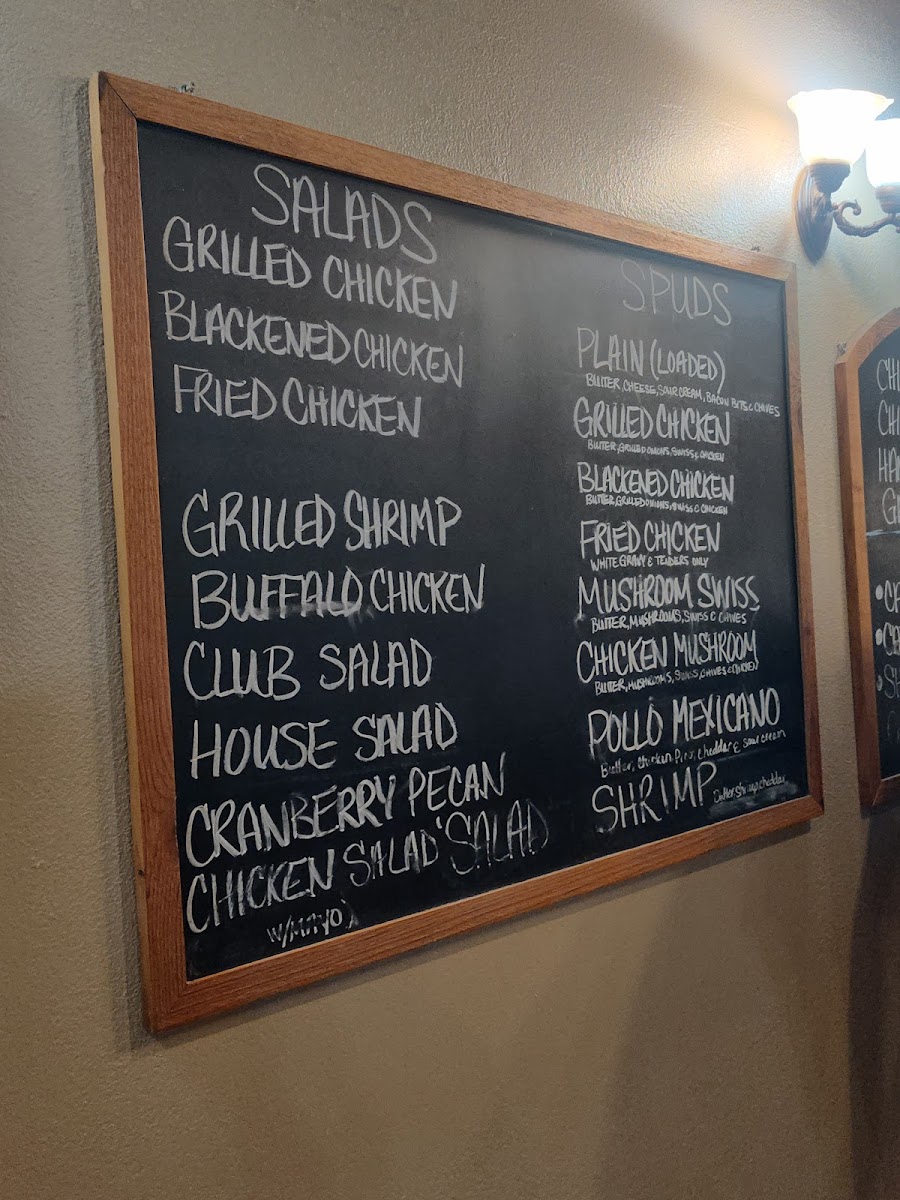 SALADS
GRILLED CHICKEN
BLACKENED CHICKEN
FRIED CHICKEN
GRILLED SHRIMP
BUFFALO CHICKEN
CLUB SALAD
HOUSE SALAD
CRANBERRY PECAN
CHICKEN SALAD 'SALAD
W/MAYO)
SPUDS
PLAIN (LOADED)
BUTTER, CHEESE, SOUR CREAM, BACON BITS & CHIVES
GRILLED CHICKEN
BUTTER, GRILLED ONIONS, SWISS & CHICKEN
BLACKENED CHICKEN
BUTTER, GRILLED ONIONS, SWISS & CHICKEN
FRIED CHICKEN
WHITE GRAVY & TENDERS ONLY
MUSHROOM SWISS
BUTTER, MUSHROOMS, SWISS & CHIVES
CHICKEN MUSHROOM
BUTTER, MUSHROOMS, SWISS, CHIVES & CHICKEN
POLLO MEXICANO
Butter, chicken, Pico, cheddar & sour cream
SHRIMP
Butter shrimp cheddar
CH
CH
HA
G